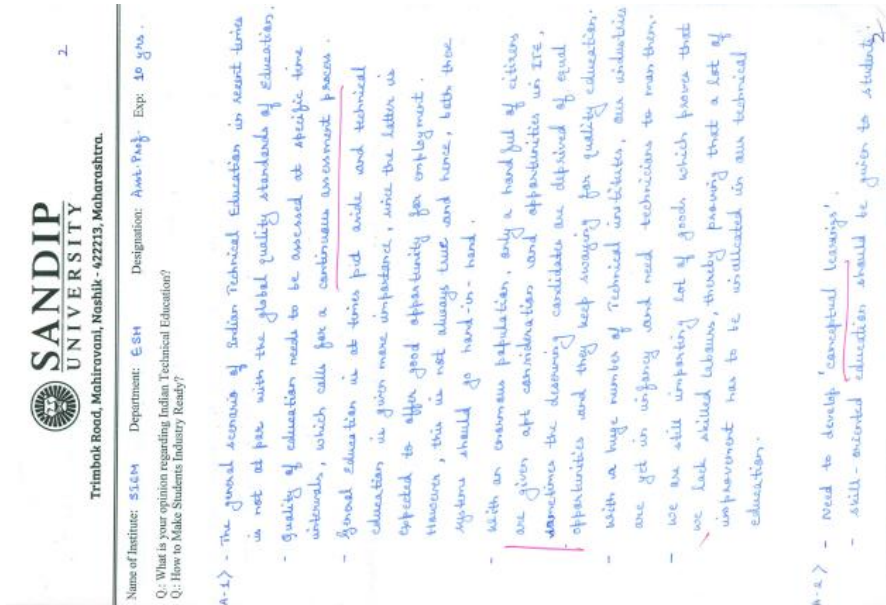 2
SANDIP
UNIVERSITY
Trimbak Road, Mahiravani, Nashik - 422213, Maharashtra.
Name of Institute: SIEM Department: ESH Designation: Asst. Prof. Exp: 10 yrs.
Q.: What is your opinion regarding Indian Technical Education?
Q.: How to Make Students Industry Ready?
A-1> - The general scenario of Indian Technical Education in recent times
is not at par with the global quality standards of Education.
- Quality of education needs to be assessed at specific time
intervals, which calls for a continuous assessment process.
- General education is at times put aside and technical
education is given more importance, since the latter is
expected to offer good opportunity for employment.
However, this is not always true and hence, both these
systems should go hand-in-hand.
- With an enormous population, only a handful of citizens
are given apt consideration and opportunities in ITE,
sometimes the deserving candidates are deprived of equal
opportunities and they keep swaying for quality education.
- With a huge number of Technical institutes, our industries
are yet in infancy and need technicians to man them.
- We are still importing lot of goods which proves that
we lack skilled labours, thereby proving that a lot of
improvement has to be in our technical
education.
A-2> - Need to develop 'conceptual learnings'.
- skill-oriented education should be given to students.
2